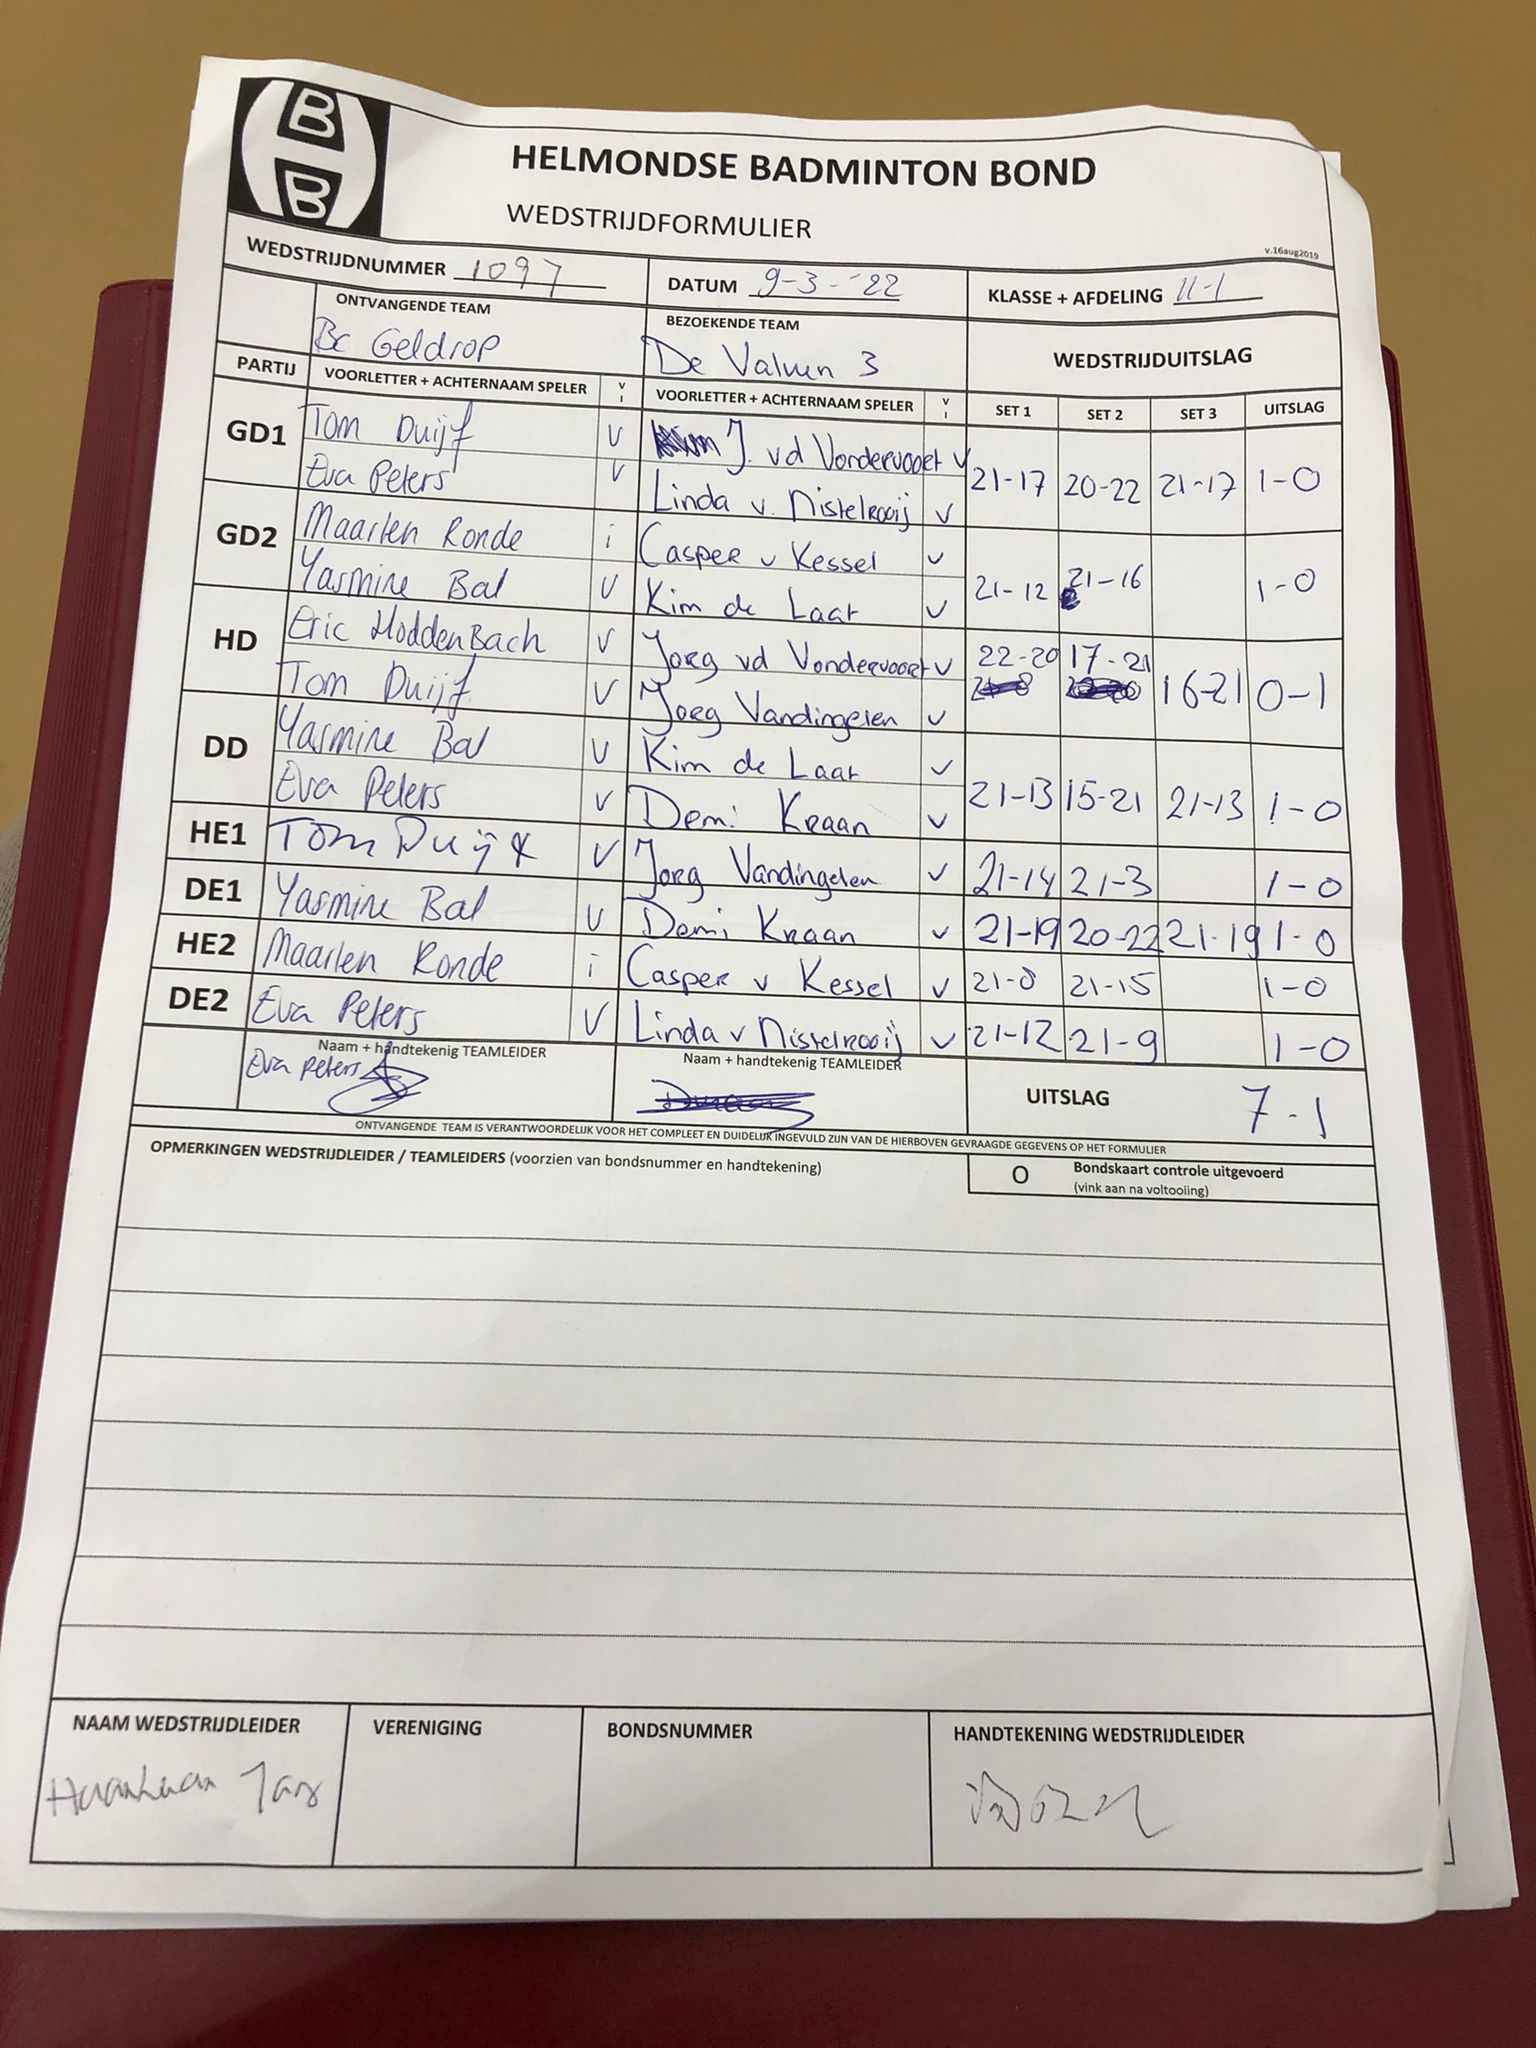 B
B
HELMONDSE BADMINTON BOND
WEDSTRIJDFORMULIER
v.16aug2019
WEDSTRIJDNUMMER 1097 DATUM 9-3-'22 KLASSE + AFDELING 11-1
ONTVANGENDE TEAM BEZOEKENDE TEAM WEDSTRIJDUITSLAG
Bc Geldrop De Valuwen 3
PARTIJ VOORLETTER + ACHTERNAAM SPELER V I VOORLETTER + ACHTERNAAM SPELER V I SET 1 SET 2 SET 3 UITSLAG
GD1 Tom Duijf V J. vd Vondervoort V 21-17 20-22 21-17 1-0
Eva Peters V Linda v. Nistelrooij V
GD2 Maarten Ronde i Casper v Kessel V 21-12 21-16 1-0
Yasmine Bal V Kim de Laat V
HD Eric Hoddenbach V Joeg vd Vondervoort V 22-20 17-21 16-21 0-1
Tom Duijf V Joeg Vandingelen V
DD Yasmine Bal V Kim de Laat V 21-13 15-21 21-13 1-0
Eva Peters V Demi Kraan V
HE1 Tom Duijf V Joeg Vandingelen V 21-14 21-3 1-0
DE1 Yasmine Bal V Demi Kraan V 21-19 20-22 21-19 1-0
HE2 Maarten Ronde i Casper v Kessel V 21-8 21-15 1-0
DE2 Eva Peters V Linda v Nistelrooij V 21-12 21-9 1-0
Naam + handtekenig TEAMLEIDER Naam + handtekenig TEAMLEIDER UITSLAG 7-1
Eva Peters
ONTVANGENDE TEAM IS VERANTWOORDELIJK VOOR HET COMPLEET EN DUIDELIJK INGEVULD ZIJN VAN DE HIERBOVEN GEVRAAGDE GEGEVENS OP HET FORMULIER
OPMERKINGEN WEDSTRIJDLEIDER / TEAMLEIDERS (voorzien van bondsnummer en handtekening) O Bondskaart controle uitgevoerd
(vink aan na voltooiing)
NAAM WEDSTRIJDLEIDER VERENIGING BONDSNUMMER HANDTEKENING WEDSTRIJDLEIDER